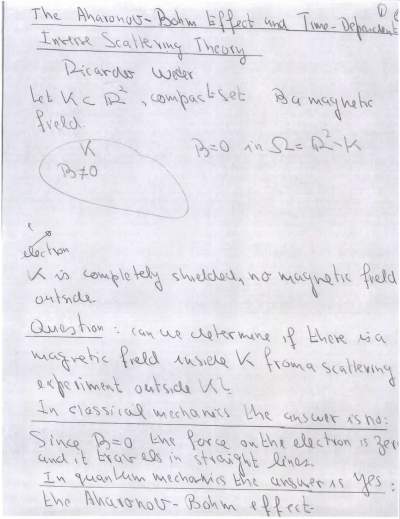 The Aharonov-Bohm Effect and Time-Dependent
Inverse Scattering Theory
Ricardo Weder
Let K ⊂ ℝ², compact set B a magnetic
field.
K
B≠0
B=0 in Ω=ℝ²∖K
electron
K is completely shielded, no magnetic field
outside.
Question: can we determine if there is a
magnetic field inside K from a scattering
experiment outside K?
In classical mechanics the answer is no:
Since B=0 the force on the electron is zero
and it travels in straight lines.
In quantum mechanics the answer is yes:
the Aharonov-Bohm effect.